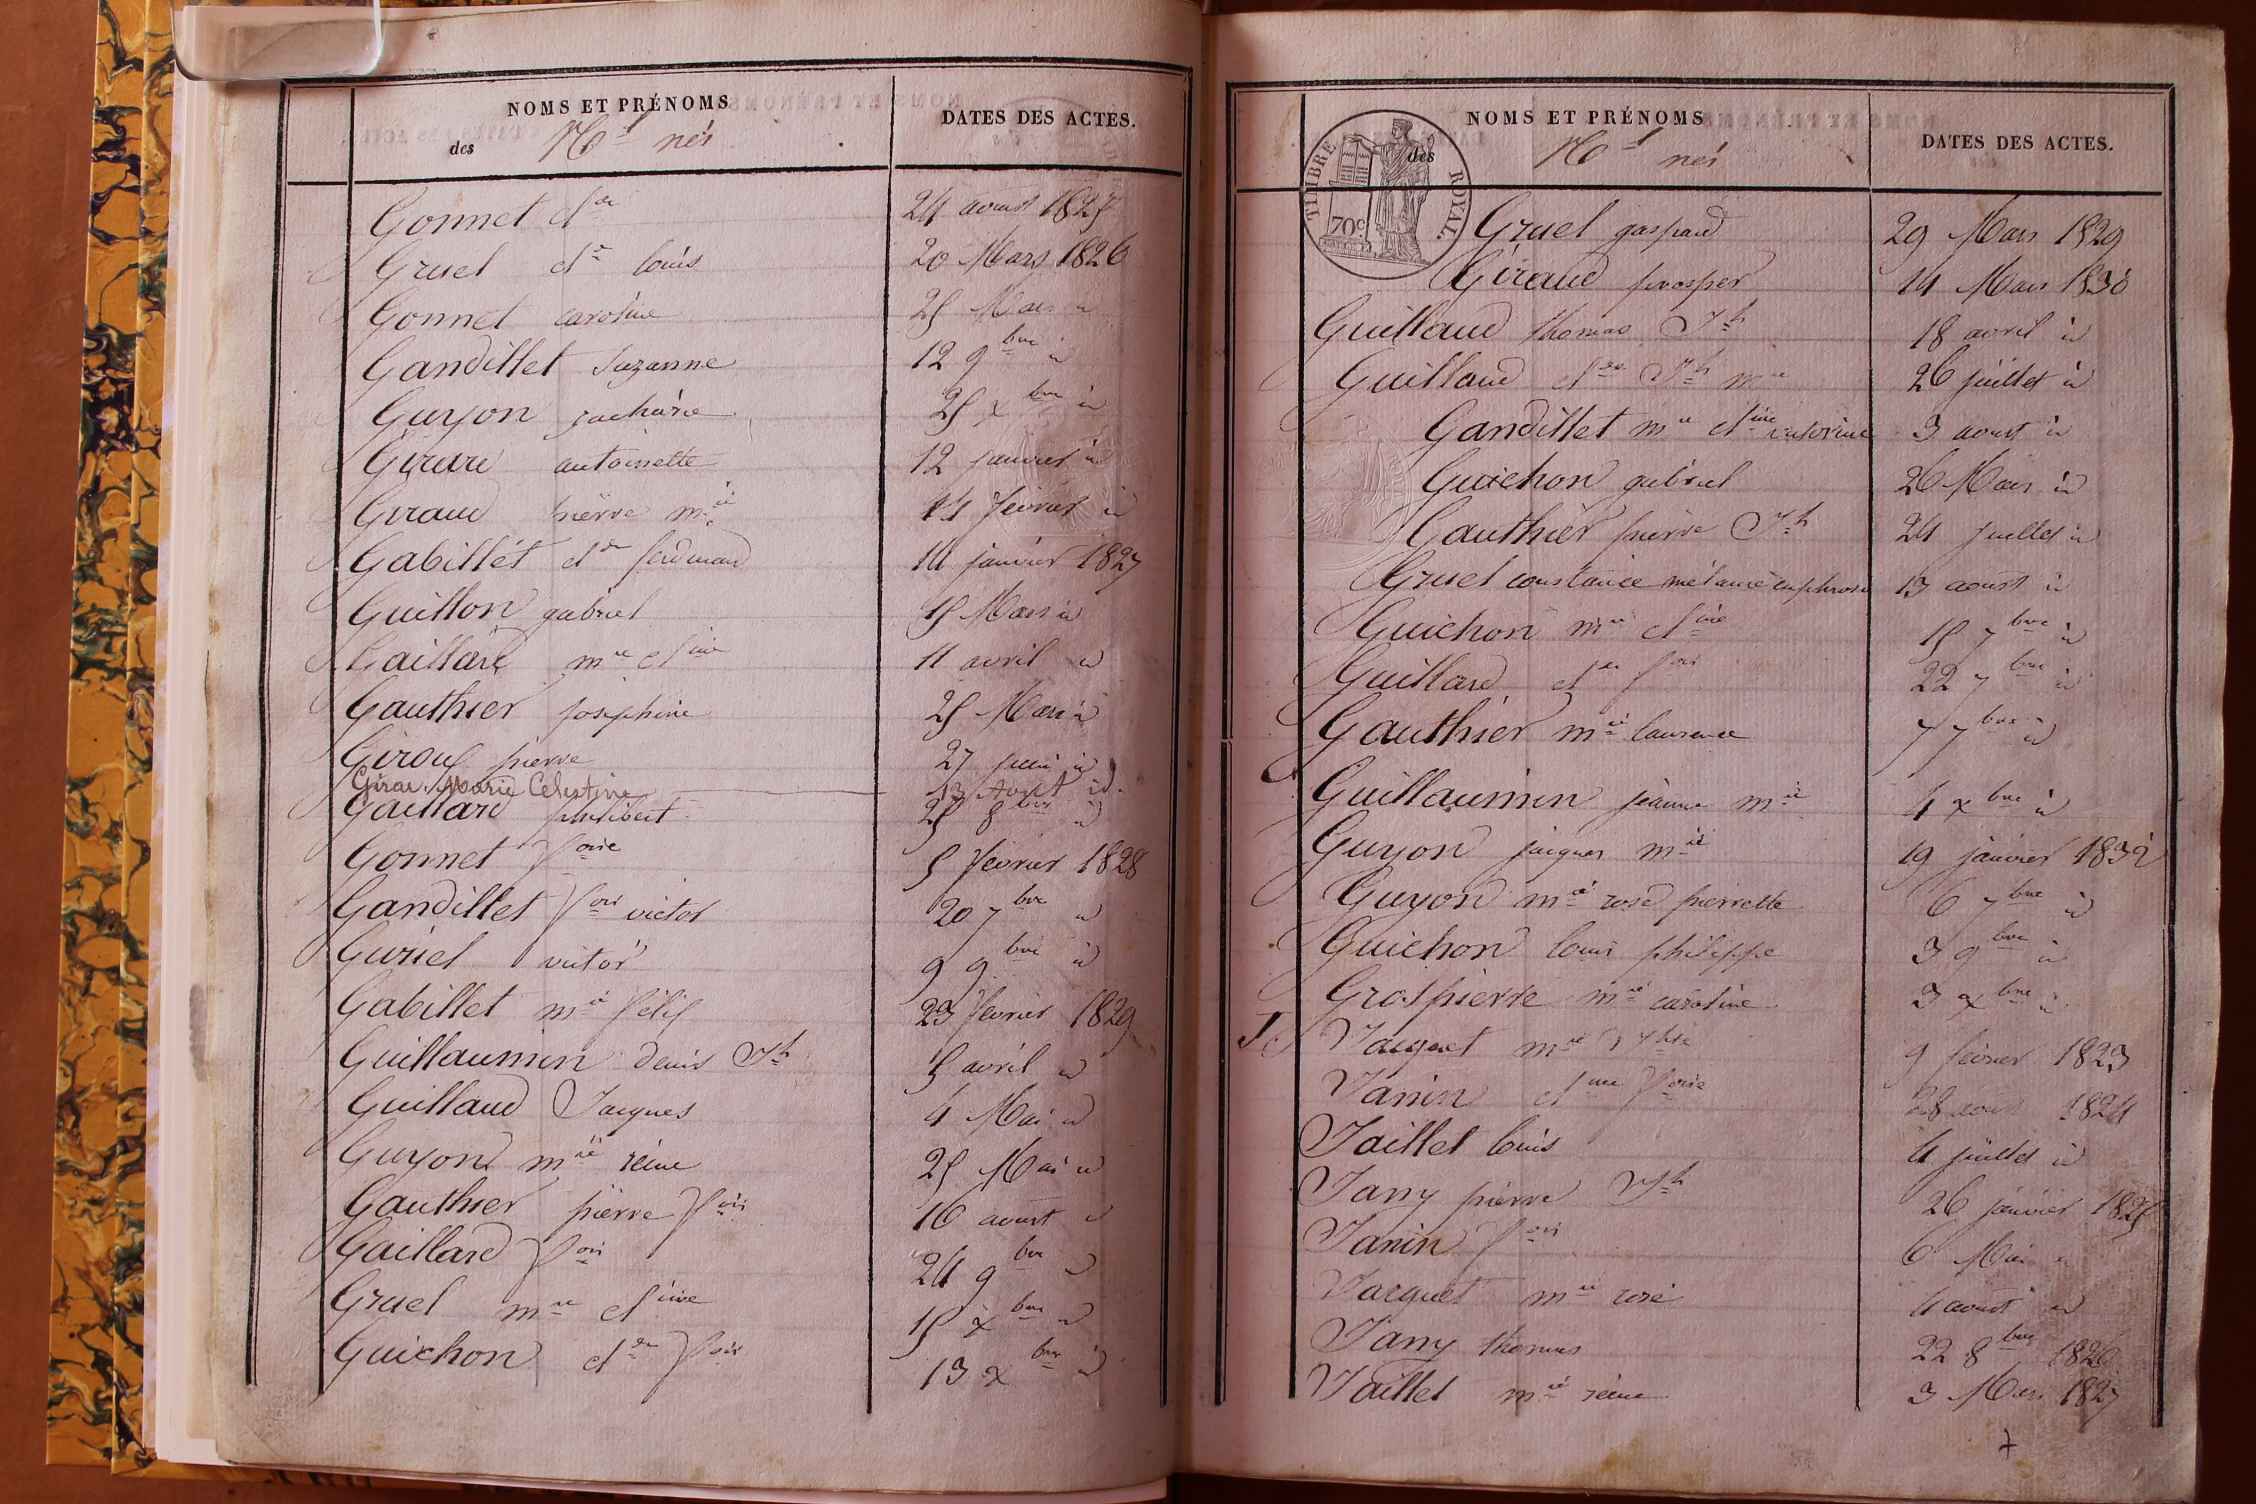 NOMS ET PRÉNOMS
des nés
DATES DES ACTES.
Gonnet 24 aoust 1825
Gruel louis 20 Mars 1826
Gonnet caroline 25 Mars id
Gandillet Suzanne 12 9bre id
Guyon zacharie 25 xbre id
antoinette 12 janvier id
Giraud pierre mie février id
Gabillet ferdinand 14 janvier 1827
Guillon gabriel 15 Mars id
Gaillard mie 11 avril id
Gauthier josephine 25 Mars id
Giroux pierre 27 juin id
Girou Marie Célestine 13 Août id.
Gaillard philibert 25 8bre id
Gonnet foise 5 février 1828
Gandillet fois victor 20 7bre id
Guriel victor 9 9bre id
Gabillet mie félix 23 février 1829
Guillaumin denis Jh 5 avril id
Guillaud Jacques 4 Mai id
Guyon mie reine 25 Mai id
Gauthier pierre fois 16 aoust id
Gaillard fois 24 9bre id
Gruel mie 15 xbre id
Guichon fois 13 xbre id
NOMS ET PRÉNOMS
des nés
DATES DES ACTES.
TIMBRE ROYAL.
70c
Gruel gaspard 29 Mars 1829
Giraud prosper 14 Mars 1830
Guillaud thomas Jh 18 avril id
Guillaud Jh mie 26 juillet id
Gandillet mie 3 aoust id
Guichon gabriel 26 Mars id
Gauthier pierre Jh 24 juillet id
Gruel constance mélanie euphrosi 13 aoust id
Guichon mie 15 7bre id
Guillard fois 22 7bre id
Gauthier mie laurence 7 7bre id
Guillaumin jeanne mie 4 xbre id
Guyon jacques mie 19 janvier 1832
Guyon mie rose pierrette 6 7bre id
Guichon louis philippe 3 9bre id
Grospierre mie caroline 3 xbre id
J
Jacquet mie 9 février 1823
Janin foise 28 aoust 1824
Jaillet louis 4 juillet id
Jany pierre Jh 26 janvier 1825
Janin fois 6 Mai id
Jacquet mie rose 4 aoust id
Jany thomas 22 8bre 1826
Jaillet mie reine 3 Mars 1827
7